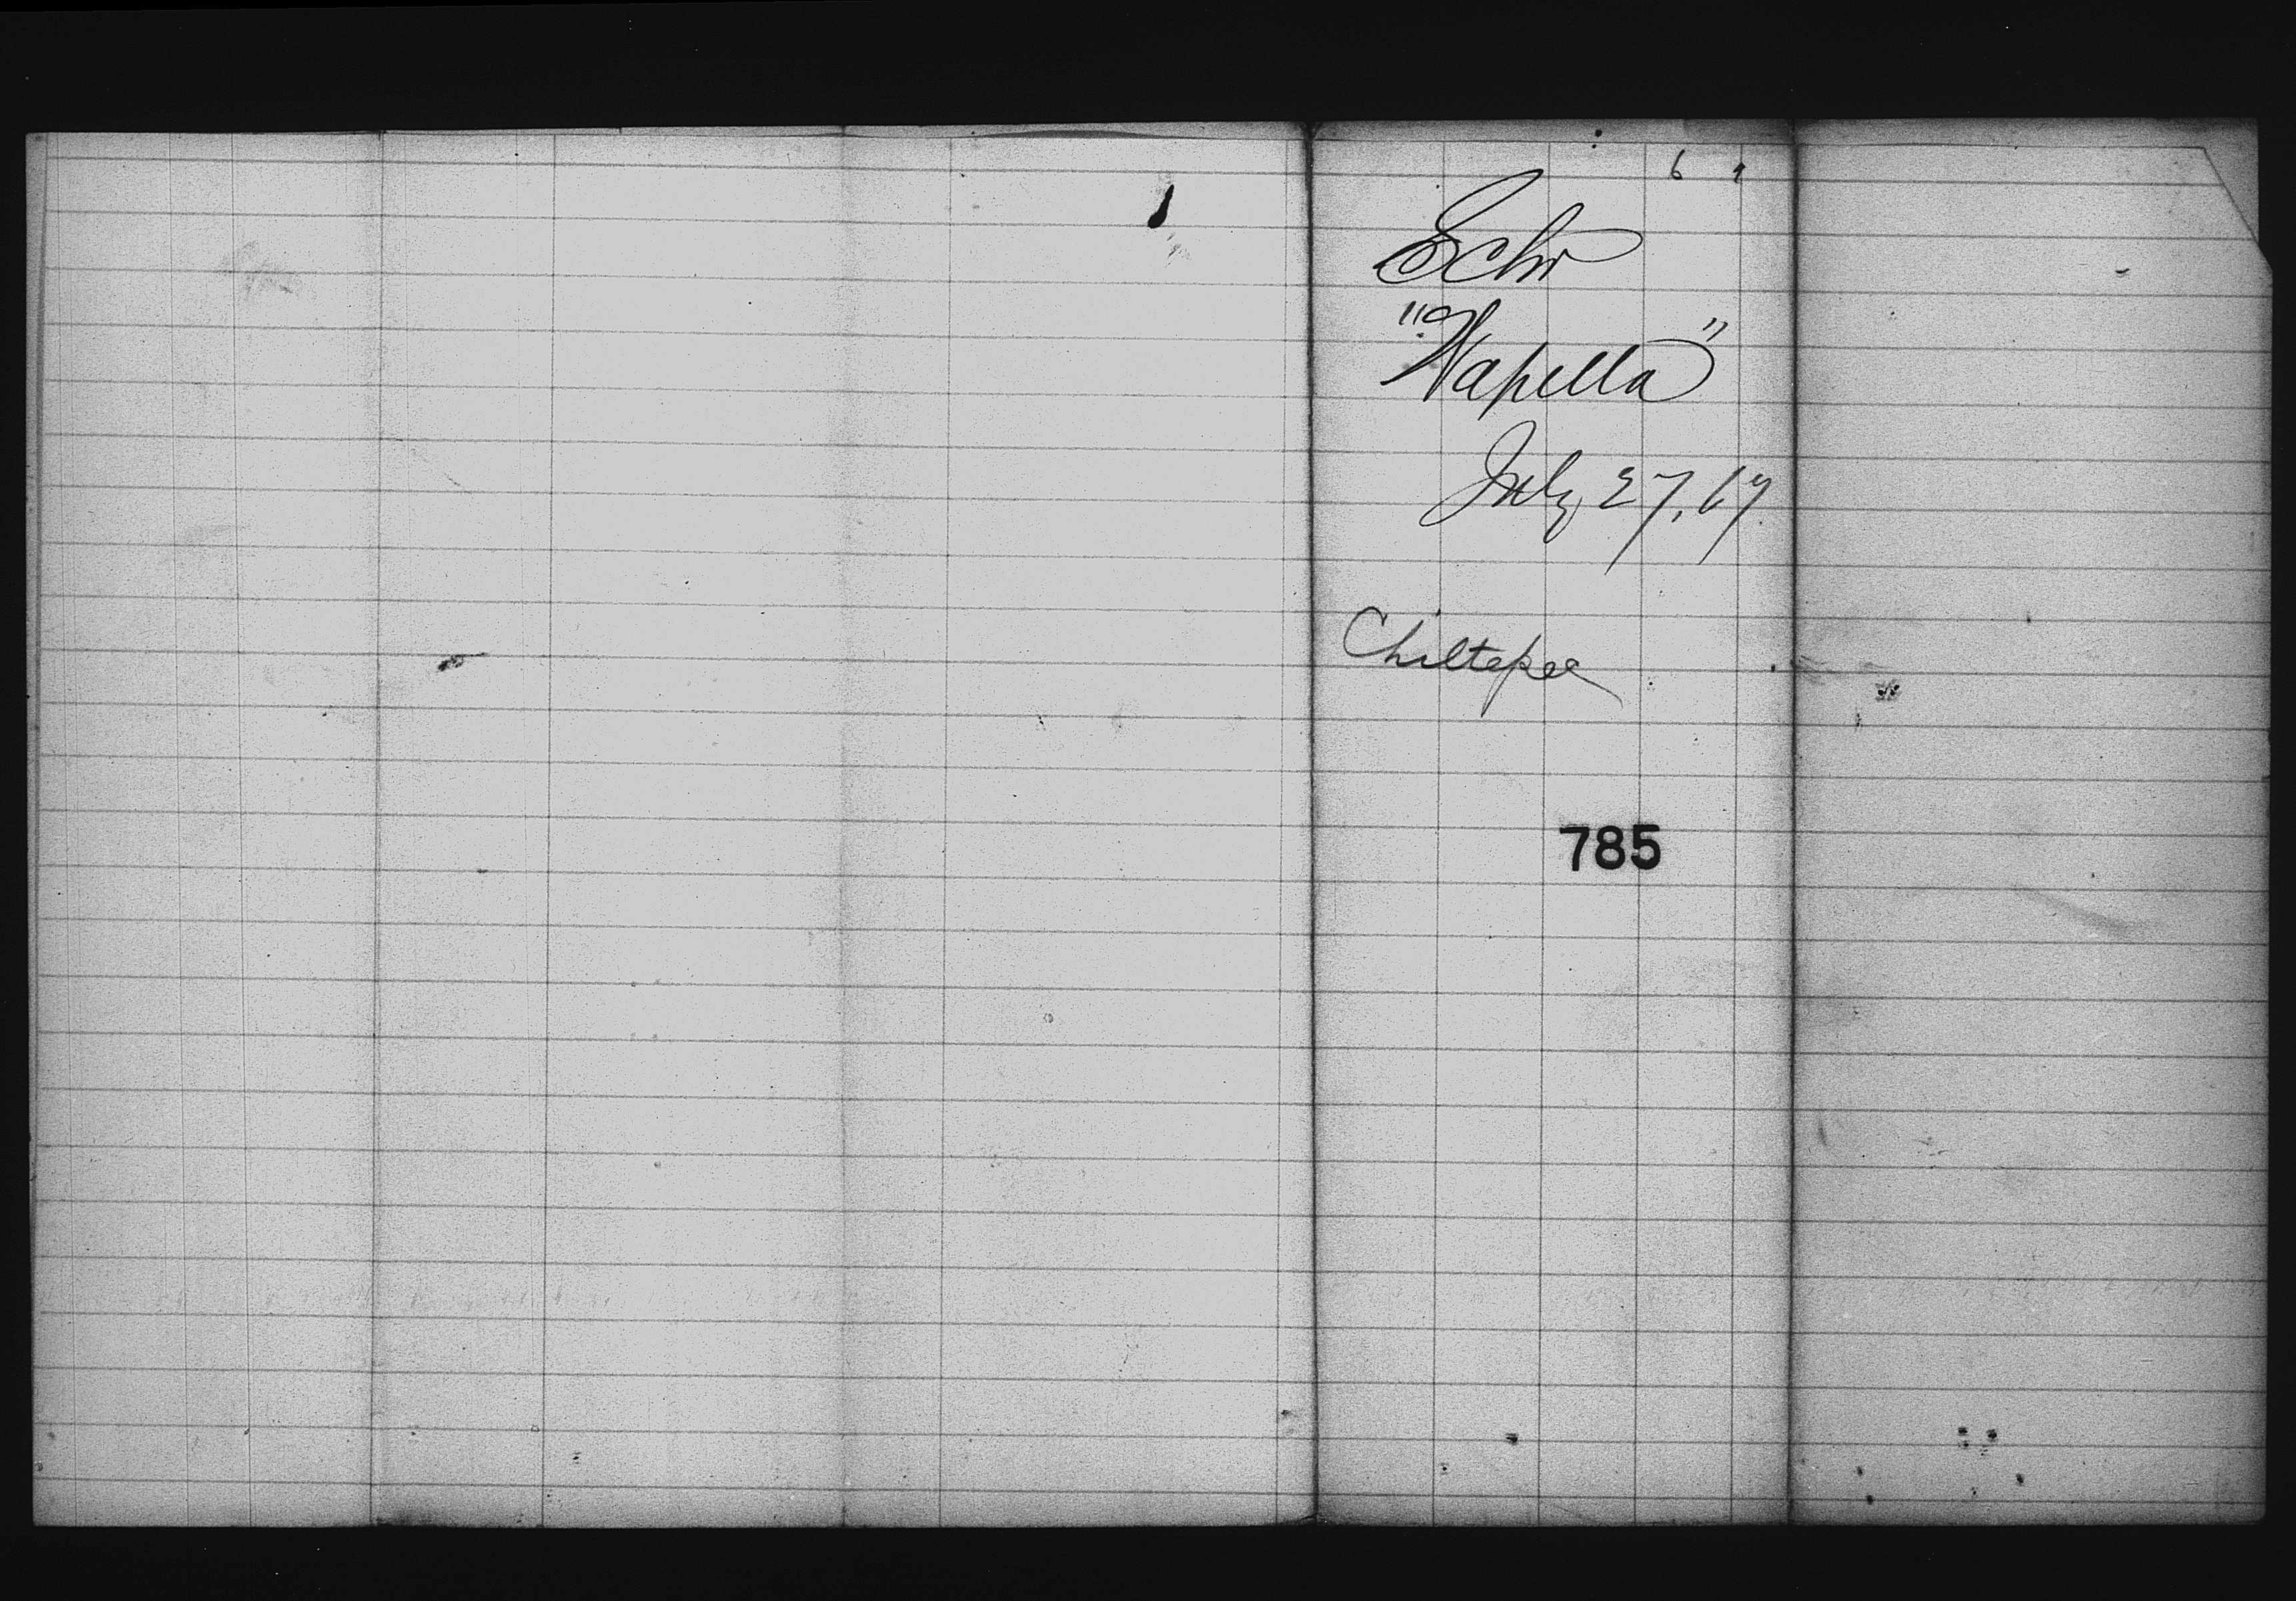 6 9
Schr
"Wapella"
July 27, 69
Chiltepec
785